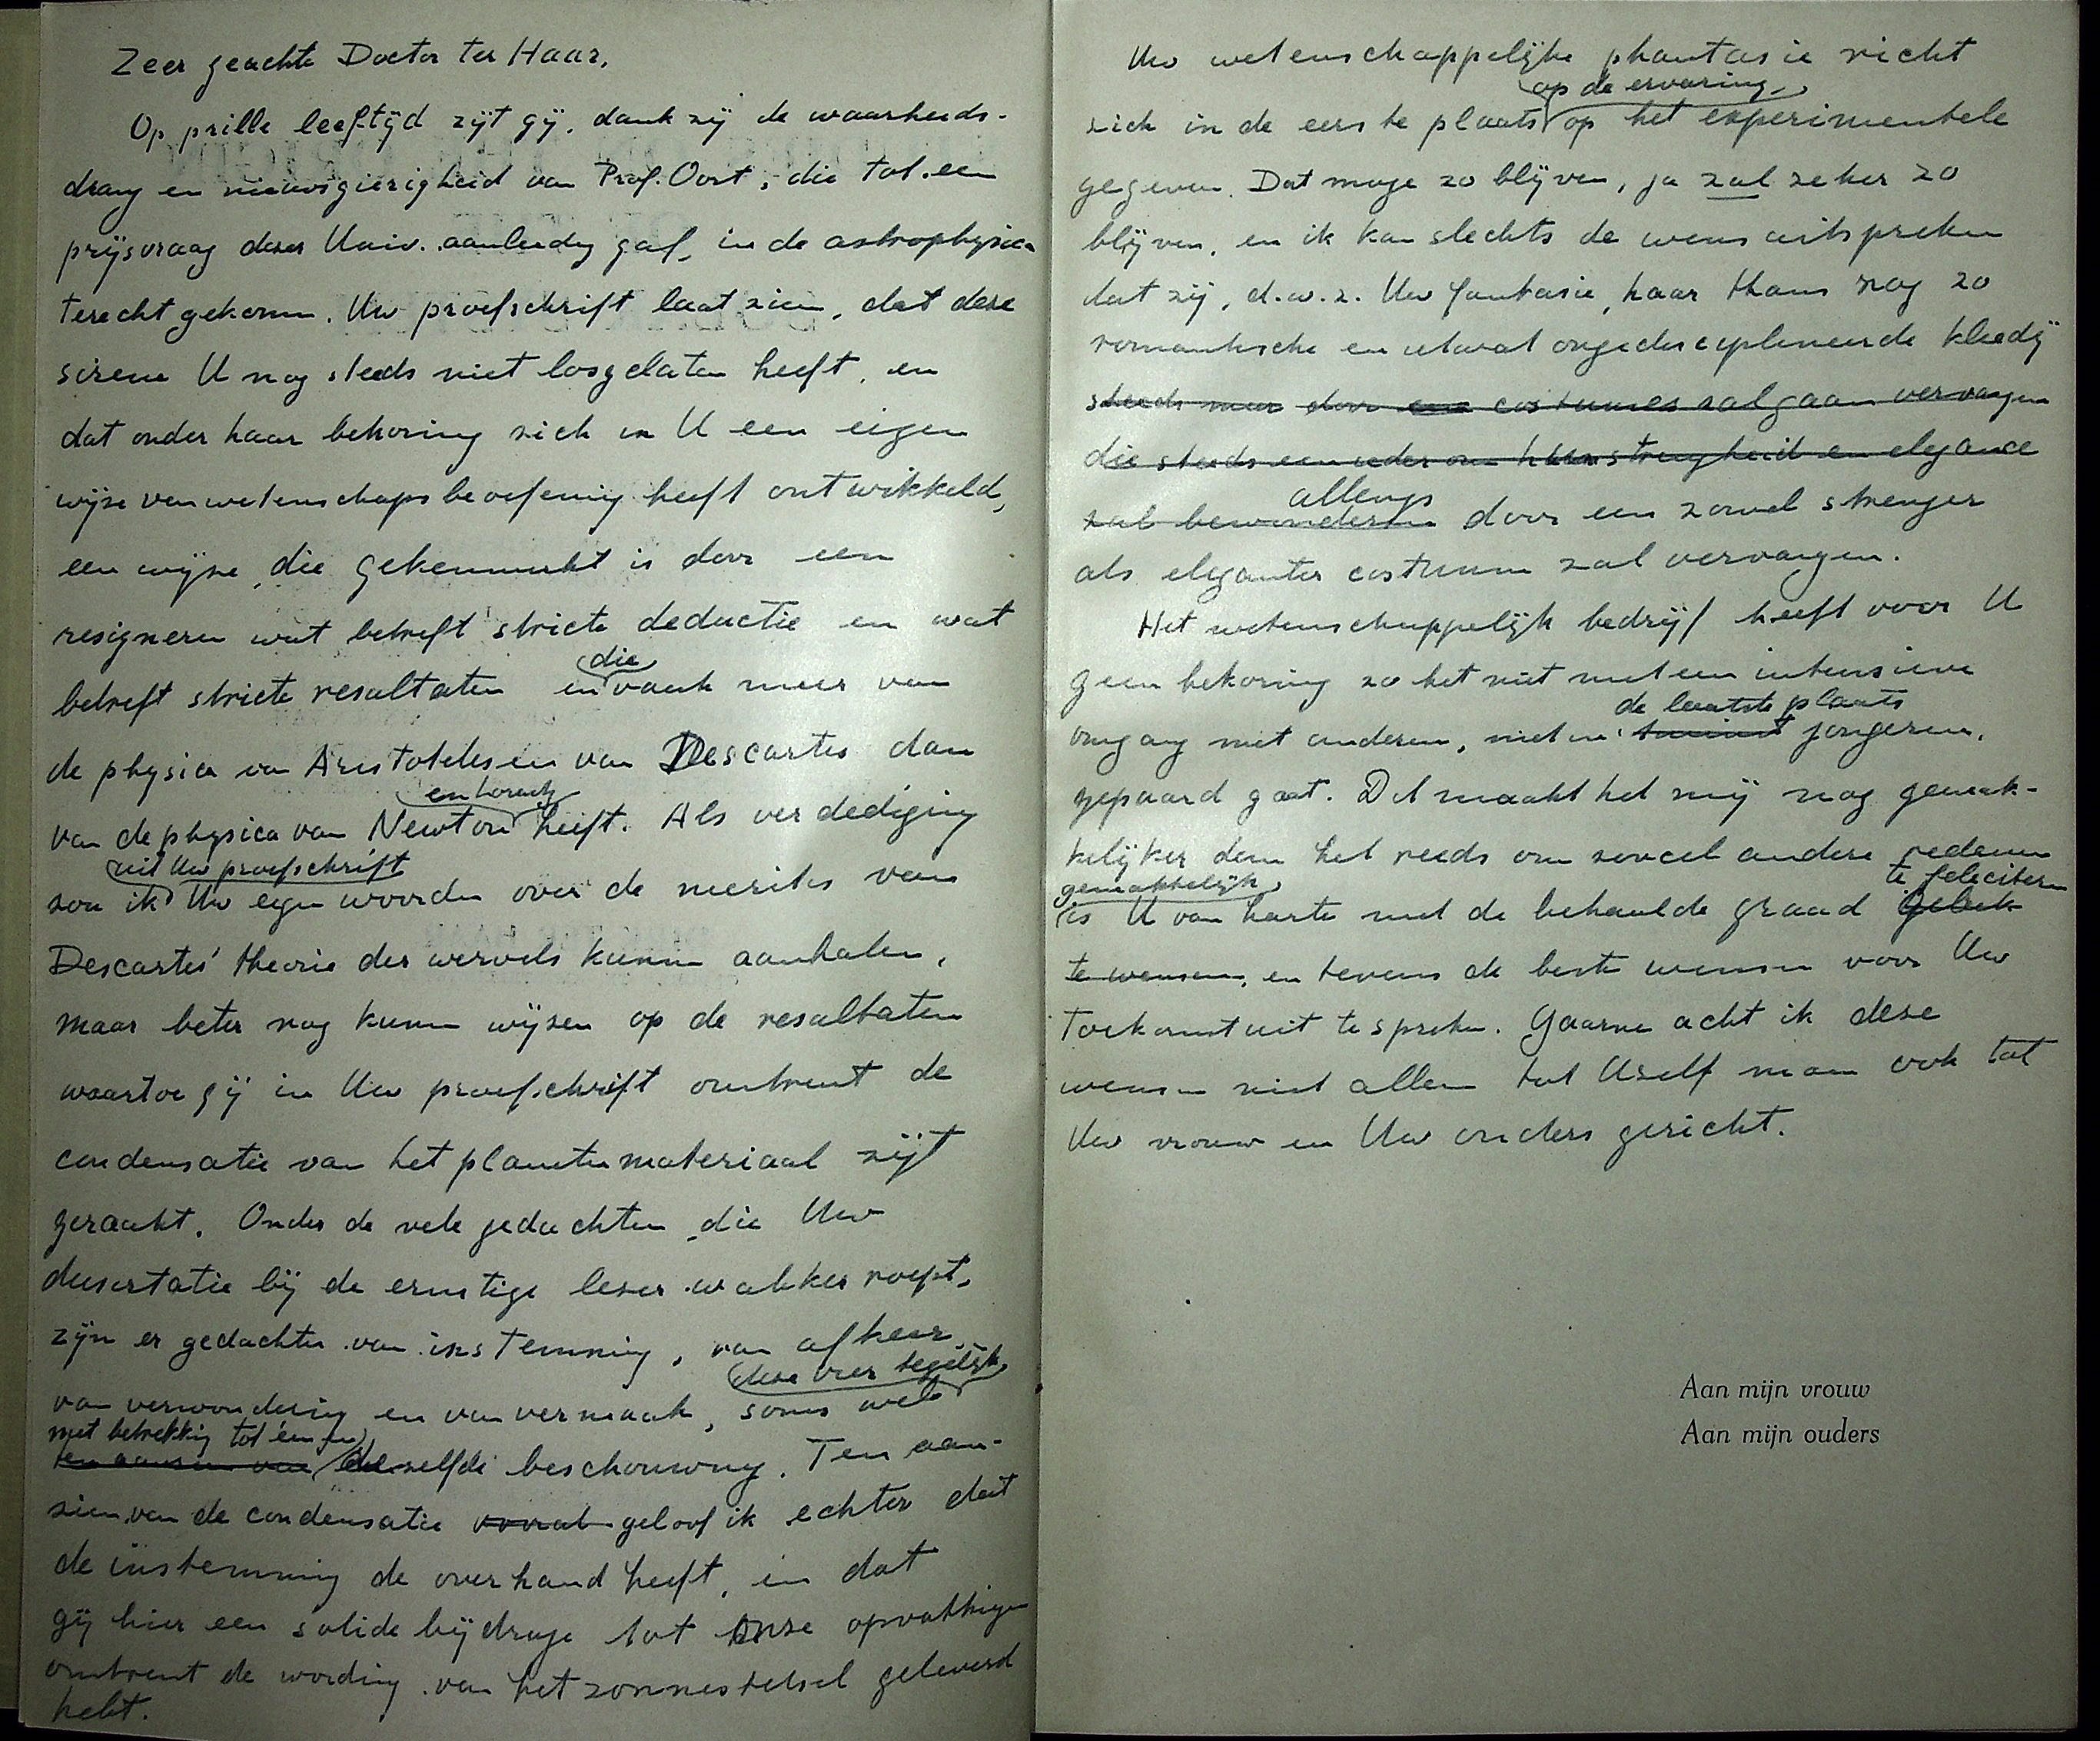 Zeer geachte Doctor ter Haar,
Op prille leeftijd zijt gij, dank zij de waarheids-
drang en nieuwsgierigheid van Prof. Oort, die tot een
prijsvraag dezer Univ. aanleiding gaf, in de astrophysica
terecht gekomen. Uw proefschrift laat zien, dat deze
sirene U nog steeds niet losgelaten heeft, en
dat onder haar bekoring zich in U een eigen
wijze van wetenschapsbeoefening heeft ontwikkeld,
een wijze, die gekenmerkt is door een
resigneren wat betreft stricte deductie en wat
betreft stricte resultaten en die vaak meer van
de physica van Aristoteles en van Descartes dan
van de physica van Newton en Lorentz heeft. Als verdediging
zou ik uit Uw proefschrift Uw eigen woorden over de merites van
Descartes' theorie der wervels kunnen aanhalen,
maar beter nog kunnen wijzen op de resultaten
waartoe gij in Uw proefschrift omtrent de
condensatie van het planetenmateriaal zijt
geraakt. Onder de vele gedachten, die Uw
dissertatie bij de ernstige lezer wakker roept,
zijn er gedachten van instemming, van afkeer,
van verwondering en van vermaak, soms wel deze vier tegelijk
ten aanzien van met betrekking tot één en dezelfde beschouwing. Ten aan-
zien van de condensatie vooral geloof ik echter dat
de instemming de overhand heeft, en dat
gij hier een solide bijdrage tot onze opvattingen
omtrent de wording van het zonnestelsel geleverd
hebt.
Uw wetenschappelijke phantasie richt
zich in de eerste plaats op de ervaring, op het experimentele
gegeven. Dat moge zo blijven, ja zal zeker zo
blijven, en ik kan slechts de wens uitspreken
dat zij, d.w.z. Uw fantasie, haar thans nog zo
romantische en ietwat ongedisciplineerde kledij
steeds meer door een costumes zal gaan vervangen
die steeds een ieder om hun strengheid en elegance
zal bewonderen allengs door een zowel strenger
als eleganter costuum zal vervangen.
Het wetenschappelijk bedrijf heeft voor U
geen bekoring zo het niet met een intensieve
omgang met anderen, niet in de laatste plaats jongeren,
gepaard gaat. Dit maakt het mij nog gemak-
kelijker dan het reeds om zoveel andere redenen
gemakkelijk is U van harte met de behaalde graad geluk te feliciteren
te wensen, en tevens de beste wensen voor Uw
toekomst uit te spreken. Gaarne acht ik deze
wensen niet alleen tot Uzelf maar ook tot
Uw vrouw en Uw ouders gericht.
Aan mijn vrouw
Aan mijn ouders